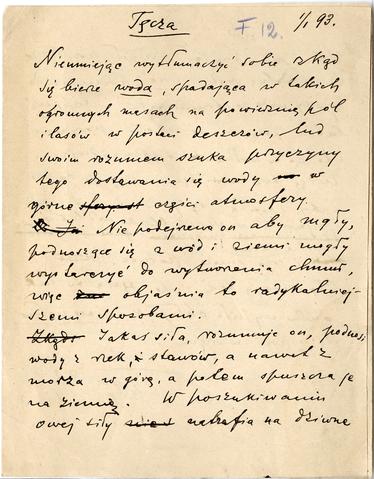 Tęcza
F. 12.
1/I 93.
Nieumiejąc wytłumaczyć sobie skąd
się bierze woda, spadająca w takich
ogromnych masach na powierzchnię pól
i lasów w postaci deszczów, lud
swoim rozumem szuka przyczyny
tego dostawania się wody w
górne części atmosfery.
Nie podejrzewa on aby mgły,
podnoszące się z wód i ziemi mogły
wystarczyć do wytworzenia chmur,
więc objaśnia to radykalniej-
szemi sposobami.
Jakaś siła, rozumuje on, podnosi
wody z rzek, stawów, a nawet z
morza w górę, a potem spuszcza je
na ziemię. W poszukiwaniu
owej siły natrafia na dziwne